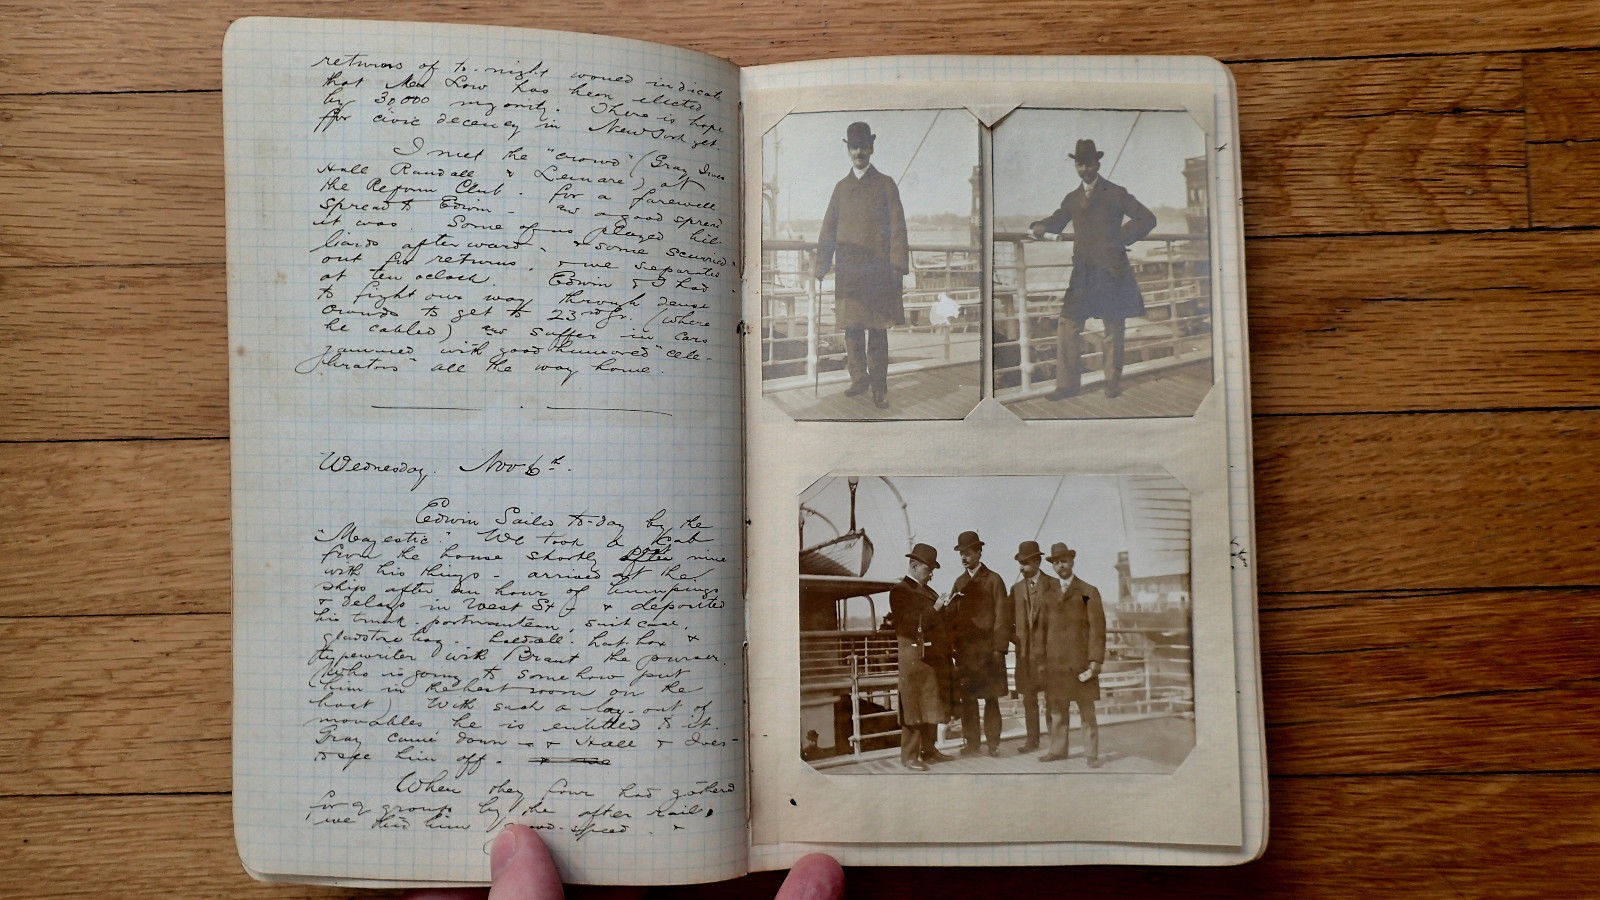 returns of to-night would indicate
that Mr Low has been elected
by 30,000 majority. There is hope
for civic decency in New York yet.
I met the "crowd" (Gray, Ives
Hall Randall & Lemare) at
the Reform Club. for a farewell
spread to Edwin - and a good spread
it was. Some of us played bil-
liards afterward - & some scurried
out for returns. & we separated
at ten oclock. Edwin & I had
to fight our way through dense
crowds to get to 23rd St. (where
he cabled) and suffer in cars
jammed with good humored "cele-
brators" all the way home.
Wednesday. Nov 6th.
Edwin Sailed to-day by the
"Majestic". We took a cab
from the house shortly after nine
with his things - arrived at the
ship after an hour of bumpings
& delays in West St & deposited
his trunk. portmanteau, suit case,
gladstone bag. holdall. hat-box &
typewriter with Brant the purser.
(who is going to somehow put
him in the best room on the
boat) With such a lay-out of
movables he is entitled to it.
Gray came down - & Hall & Ives -
to see him off.
When they four had gathered
for a group by the after rail,
we bid him God-speed. &